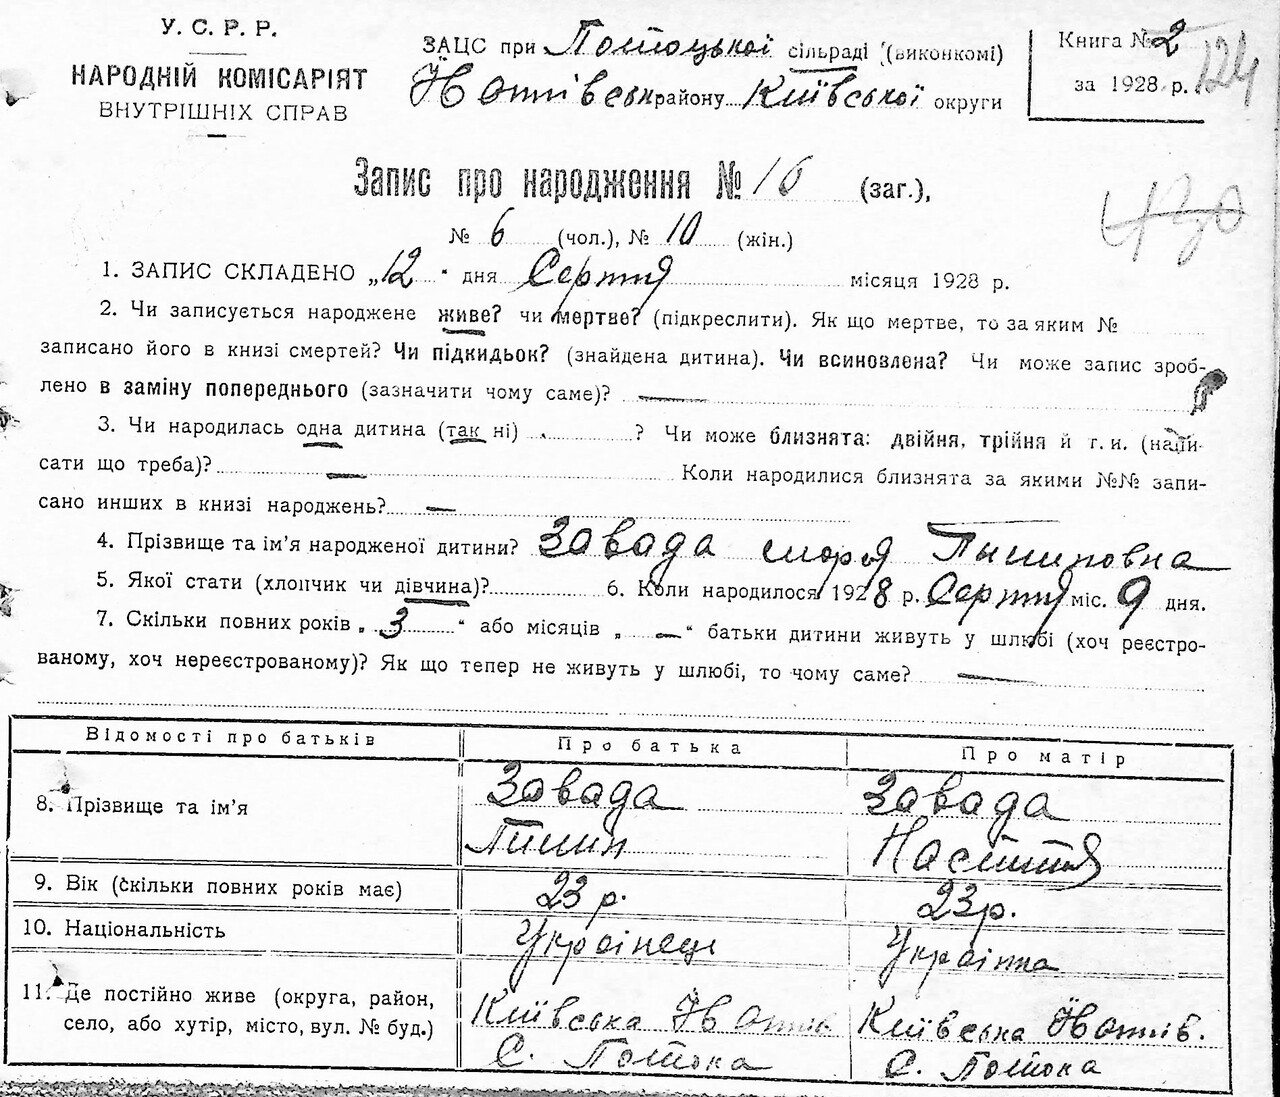 У. С. Р. Р.
НАРОДНІЙ КОМІСАРІЯТ
ВНУТРІШНІХ СПРАВ
ЗАЦС при Потоцькой сільраді (виконкомі)
району Київської округи
Книга № 2
за 1928 р.
124
Запис про народження № 16 (заг.),
430
№ 6 (чол.), № 10 (жін.)
1. ЗАПИС СКЛАДЕНО „12" дня Серпня місяця 1928 р.
2. Чи записується народжене живе? чи мертве? (підкреслити). Як що мертве, то за яким №
записано його в книзі смертей? Чи підкидьок? (знайдена дитина). Чи всиновлена? Чи може запис зроб-
лено в заміну попереднього (зазначити чому саме)? —
3. Чи народилась одна дитина (так ні) ? Чи може близнята: двійня, трійня й т. и. (напи-
сати що треба)? — Коли народилися близнята за якими №№ запи-
сано инших в книзі народжень? —
4. Прізвище та ім'я народженої дитини? Завада Марія Пилиповна
5. Якої стати (хлопчик чи дівчина)? 6. Коли народилося 1928 р. Серпня міс. 9 дня.
7. Скільки повних років „ 3 " або місяців „ — " батьки дитини живуть у шлюбі (хоч реєстро-
ваному, хоч нереєстрованому)? Як що тепер не живуть у шлюбі, то чому саме? —
Відомості про батьків Про батька Про матір
8. Прізвище та ім'я Завада Завада
Пилип Настя
9. Вік (скільки повних років має) 23 р. 23 р.
10. Національність Українець Українка
11. Де постійно живе (округа, район, Київська Київська
село, або хутір, місто, вул. № буд.) С. Потока С. Потока